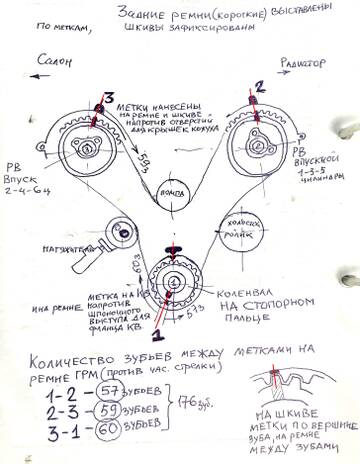 Задние ремни(короткие) выставлены
по меткам, шкивы зафиксированы
Салон
Радиатор
3
2
Метки нанесены
на ремне и шкиве
напротив отверстий
для крышек кожуха
59з
РВ
Впуск
2-4-6ц
РВ
Впускной
1-3-5
цилиндры
помпа
натяжитель
холост.
ролик
60з
метка на КВ
и на ремне напротив
шпоночного
выступа для
фланца КВ
1
57з
коленвал
на стопорном
пальце
Количество зубьев между метками на
ремне ГРМ (против час. стрелки)
1-2-57 зубьев
2-3-59 зубьев
3-1-60 зубьев
176 зуб.
на шкиве
метки по вершине
зуба, на ремне
между зубами